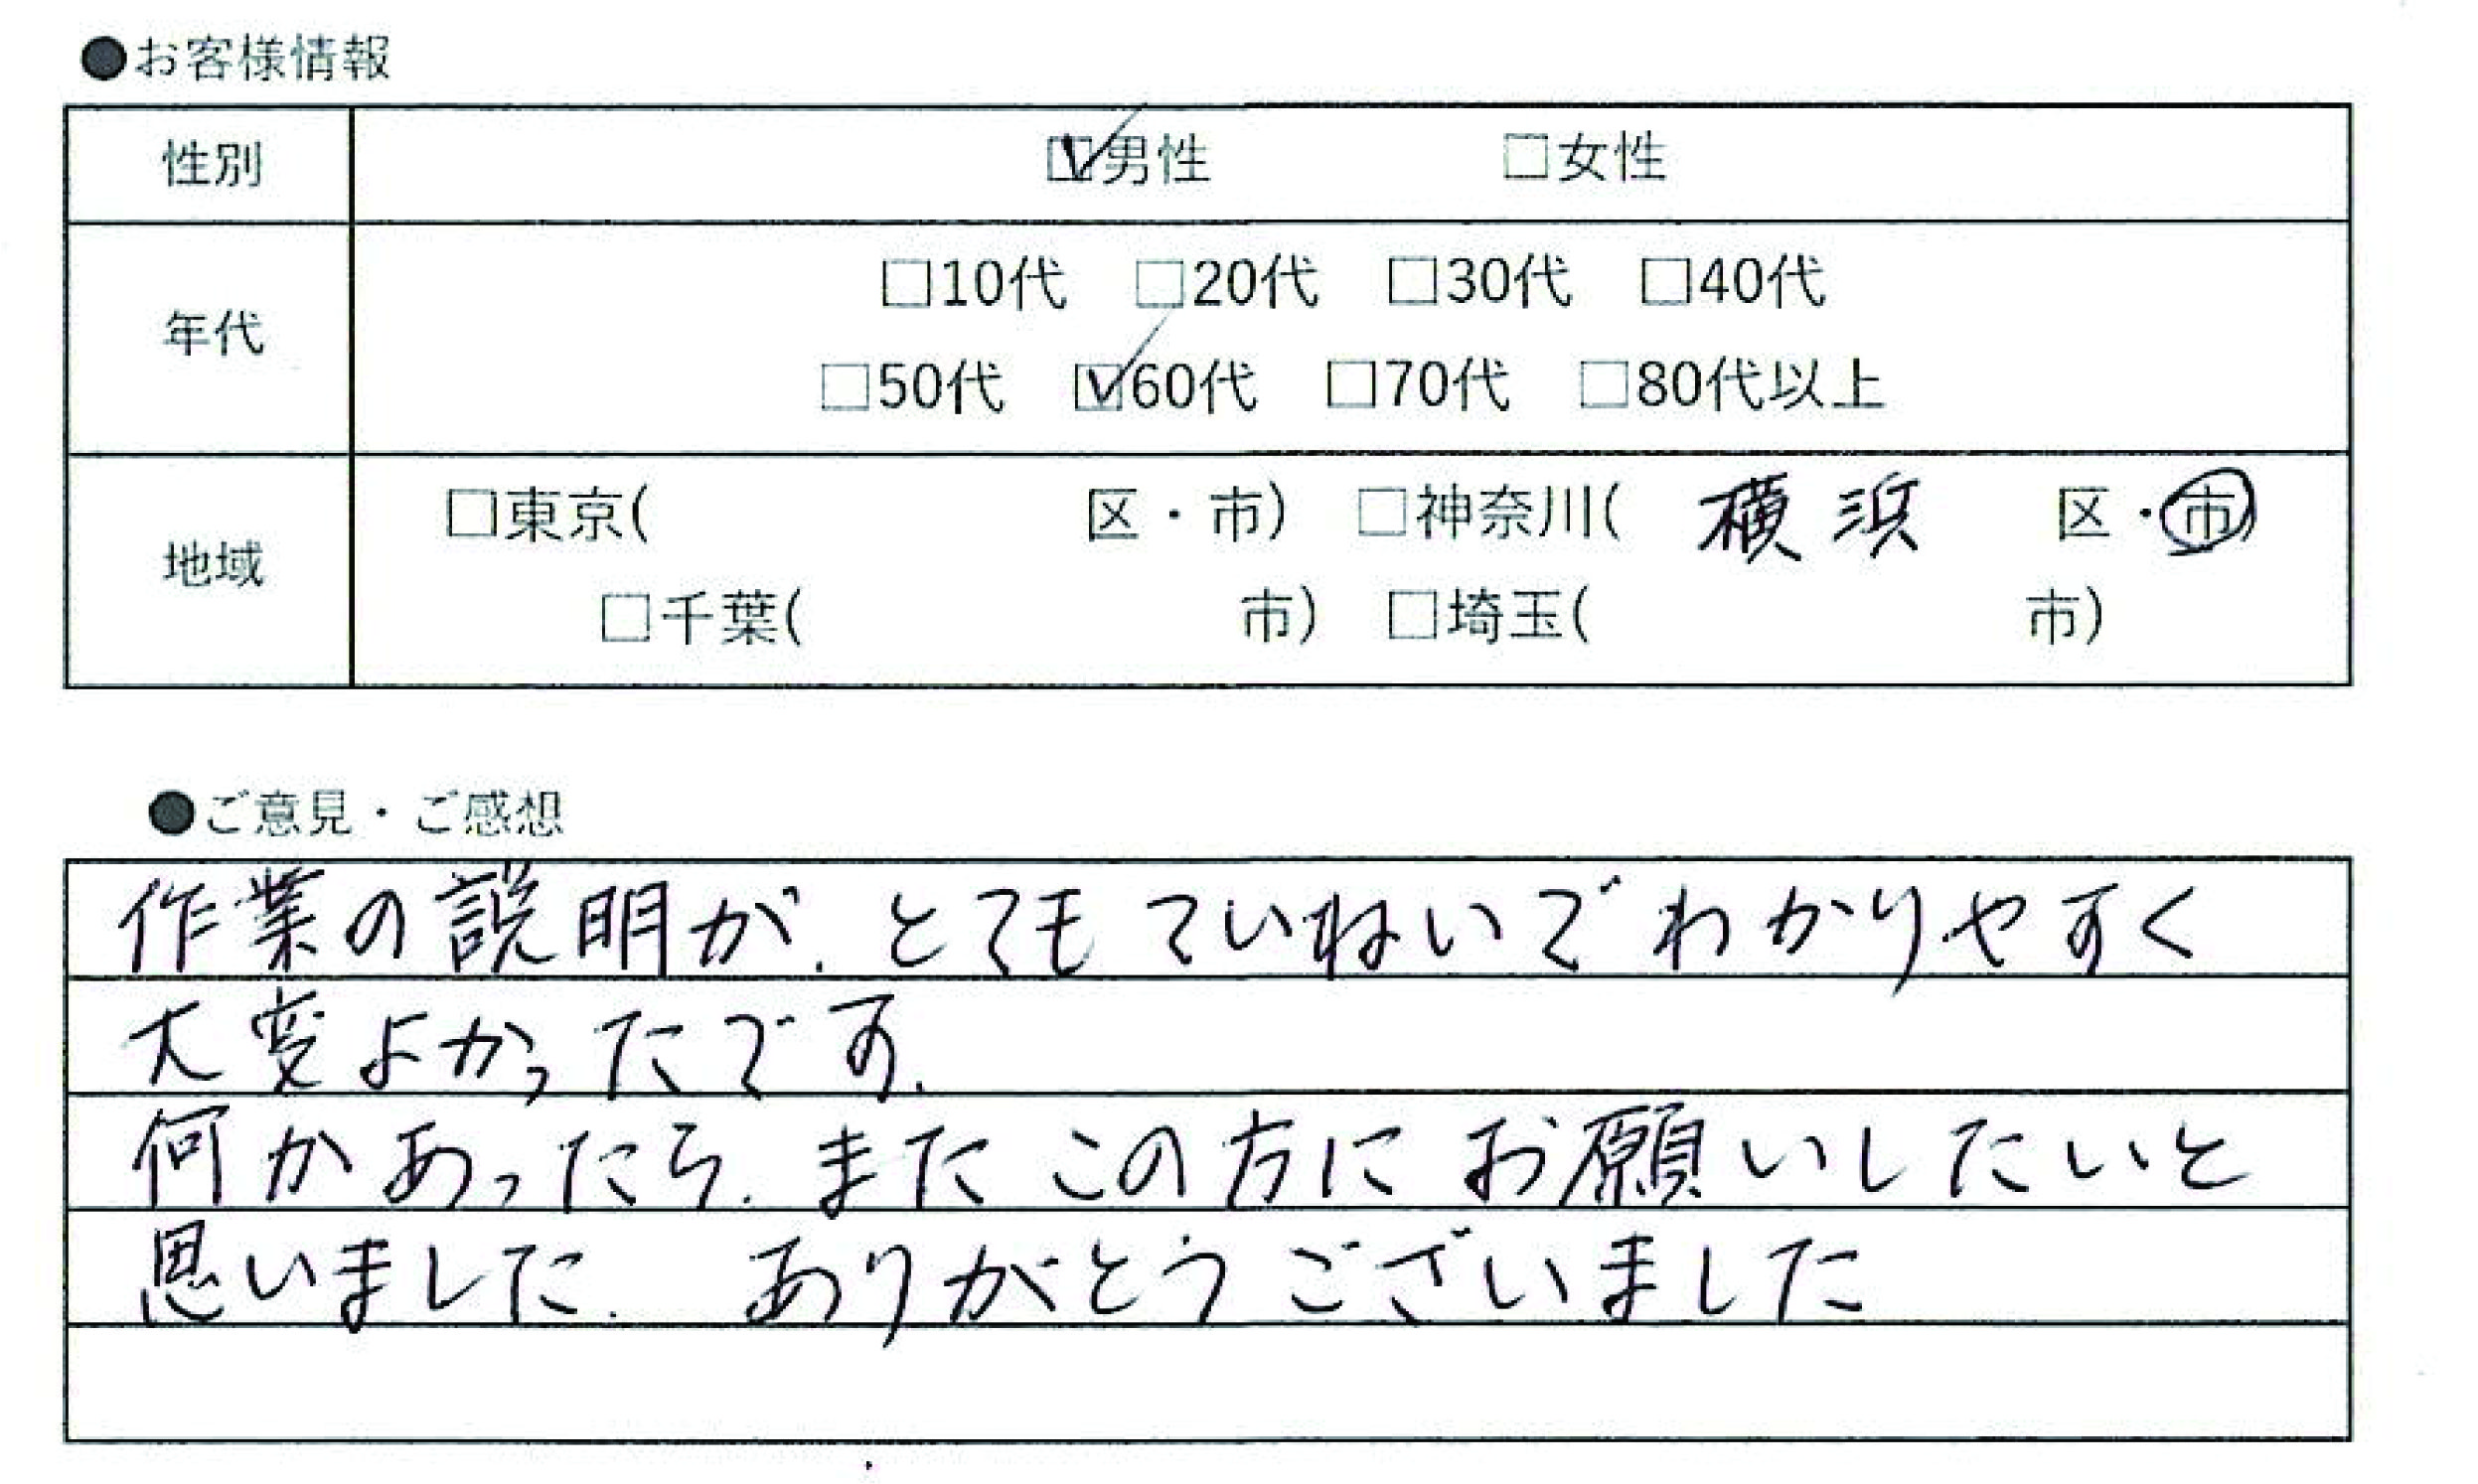 ●お客様情報
性別 ☑男性 □女性
年代 □10代 □20代 □30代 □40代
□50代 ☑60代 □70代 □80代以上
地域 □東京( 区・市) □神奈川( 横浜 区・市)
□千葉( 市) □埼玉( 市)
●ご意見・ご感想
作業の説明が、とてもていねいでわかりやすく
大変よかったです。
何かあったら、またこの方にお願いしたいと
思いました。ありがとうございました